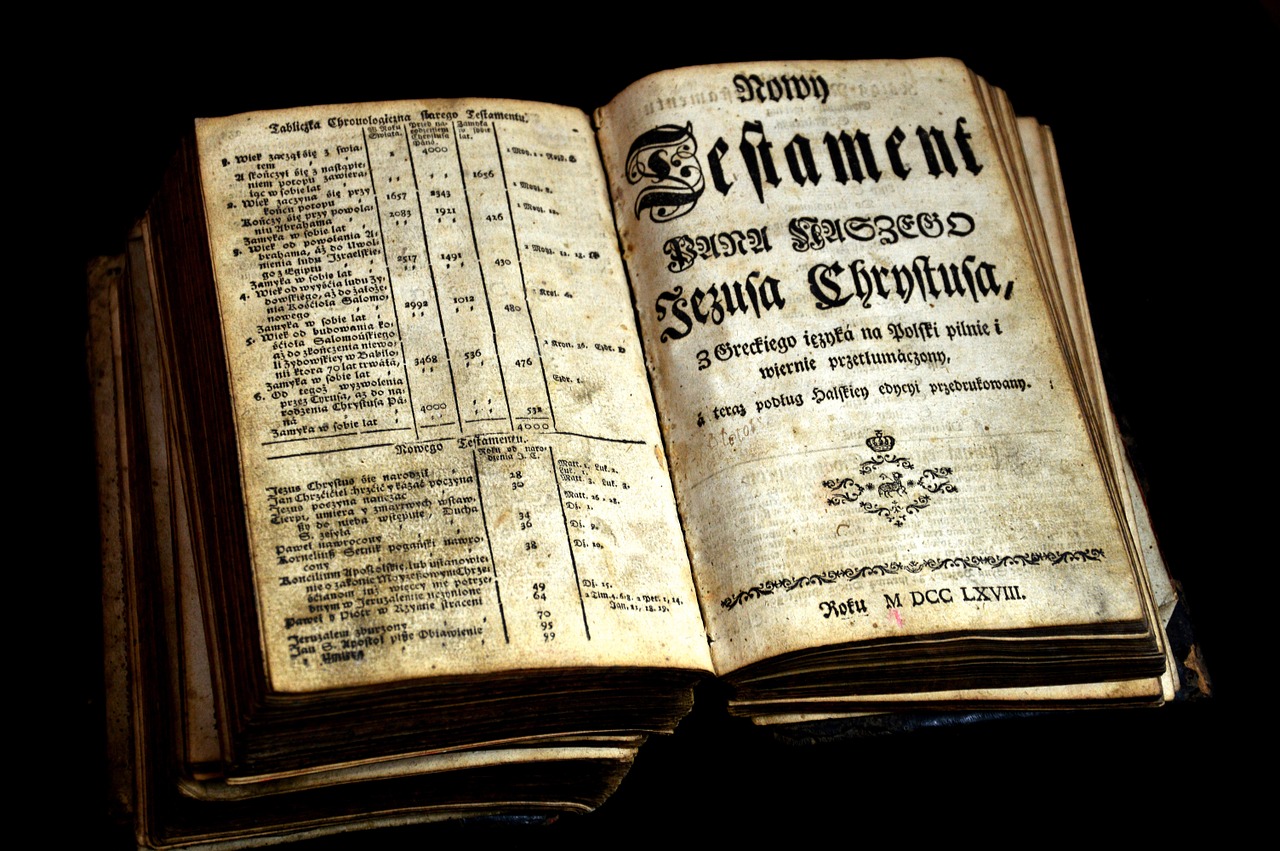 Tabliczka Chronologiczna starego Testamentu.
W Roku Świata. Przed narodzeniem Chrystusa Pana. Zamyka w sobie lat.
1. Wiek zacząłsię z światem 1 4000
A skończył się z nastąpieniem potopu zawierając w sobie lat 1656
2. Wiek zaczyna się przy końcu potopu 1657 2343
Kończy się przy powołaniu Abrahama 2083 1921
Zamyka w sobie lat 426
3. Wiek od powołania Abrahama, aż do Uwolnienia ludu Izraelskiego z Egiptu 2517 1491
Zamyka w sobie lat 430
4. Wiek od wyyścia ludu Żydowskiego, aż do założenia Kościoła Salomonowego 2992 1012
Zamyka w sobie lat 480
5. Wiek od budowania kościoła Salomońskiego aż do zkończenia niewoli Żydowskiey w Babilonii ktora 70 lat trwała, 3468 536
Zamyka w sobie lat 476
6. Od tegoż wyzwolenia przez Cyrusa, aż do narodzenia Chrystusa Pana 4000
Zamyka w sobie lat 532
4000
Nowego Testamentu.
Roku od narodzenia J. C.
Jezus Chrystus się narodził
Jan Chrzciciel chrzcić y kazać poczyna 28
Jezus poczyna nauczać 30
Cierpi, umiera y zmartwych wstawszy do nieba wstępuie, Ducha S. zsyła 34
Paweł nawrocony 36
Korneliusz Setnik pogański nawrocony 38
Koncilium Apostolskie, lub ustanowienie o zakonie Moyżeszowym Chrześcianom już więcey nie potrzebnym w Jeruzalemie uczynione 49
Paweł y Piotr w Rzymie straceni 64
Jeruzalem zburzony 70
Jan S. Apostoł pisze Obiawienie 95
y umiera 99
Nowy
Testament
PANA NASZEGO
Jezusa Chrystusa,
Z Greckiego ięzyká na Polski pilnie i
wiernie przetłumáczony,
á teraz podług Halskiey edycyi przedrukowany.
Roku M DCC LXVIII.